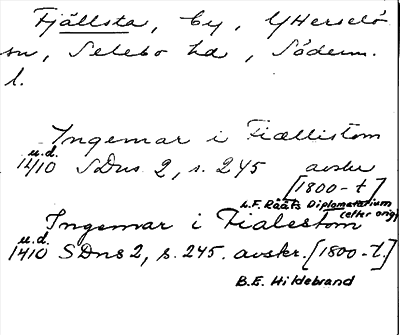 Fjällsta, by, Ytterselö
sn, Selebo hd, Söderm.
l.
Ingemar i Fiællistom
u.d.
1410 SDns 2, s. 245 avskr
[1800-t]
L.F. Rääfs Diplomatarium
(efter orig)
Ingemar i Fialestom
u.d.
1410 SDns 2, s. 245. avskr. [1800-t.]
B.E. Hildebrand